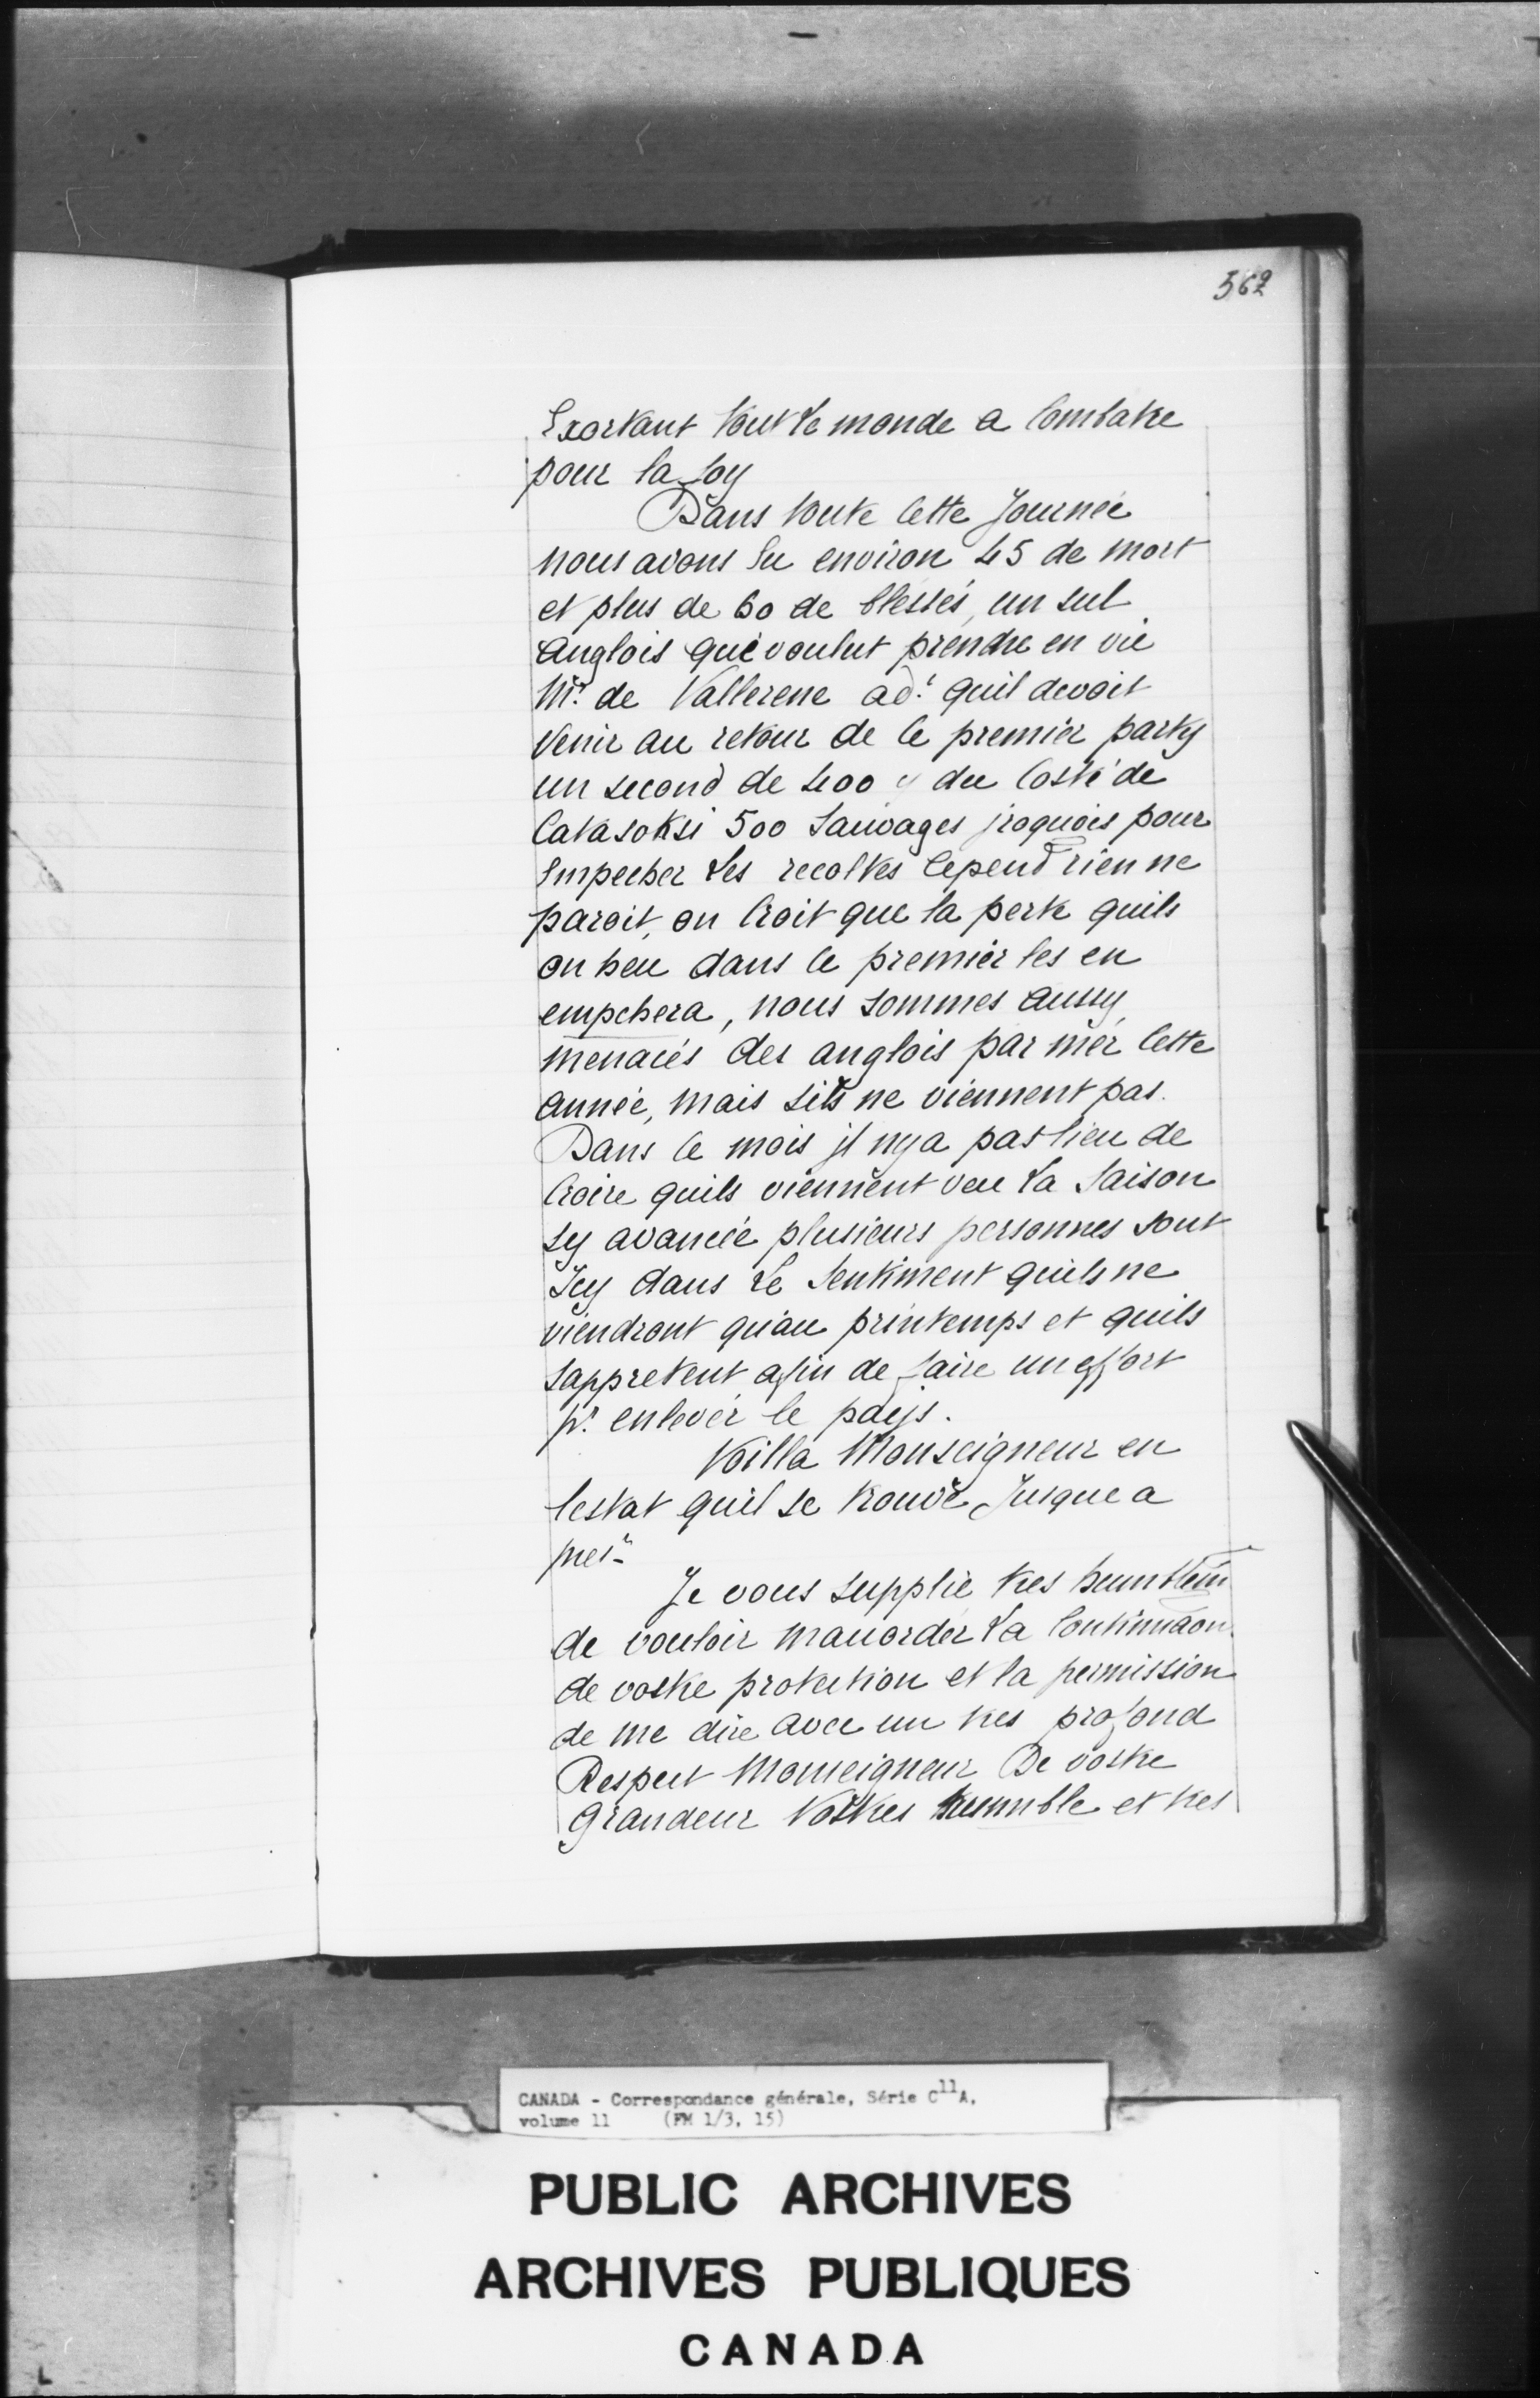 562
Exortant tout Le monde a Combatre
pour la foy
Dans toute Cette Journée
nous avons Eu environ 45 de mort
et plus de 60 de blessés, un sul
anglois que voulut prendre en vie
Mr. de Vallerene adt. quil devoit
Venir au retour de Ce premier party
un second de 400 y du Costé de
Catasoksi 500 Sauvages jroquois pour
Empecher Les recoltes Cepend rien ne
paroit, on Croit que la perte quils
on heu dans Ce premier les en
empchera, nous sommes aussy
menacés des anglois par mer Cette
année, mais sils ne viennent pas.
Dans Ce mois jl nya pas lieu de
Croire quils viennent veu La Saison
sy avancée plusieurs personnes sont
Jcy dans Le Sentiment quils ne
viendront qu'au printemps et quils
sappretent afin de faire un effort
pr. enlever le pays.
Voilla Monseigneur en
lestat quil se trouve Jusque a
pnt
Je vous supplie tres humblem
de vouloir macorder La Continuaon.
de vostre protection et la permission
de me dire avec un tres profond
Respect Monseigneur De vostre
Grandeur Vostres humble et tres
CANADA - Correspondance générale, Série C11A,
volume 11 (FM 1/3, 15)
PUBLIC ARCHIVES
ARCHIVES PUBLIQUES
CANADA